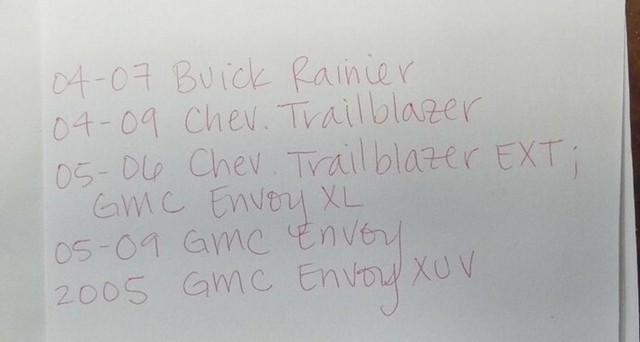 04-07 Buick Rainier
04-09 Chev. Trailblazer
05-06 Chev. Trailblazer EXT;
GMC Envoy XL
05-09 GMC Envoy
2005 GMC Envoy XUV